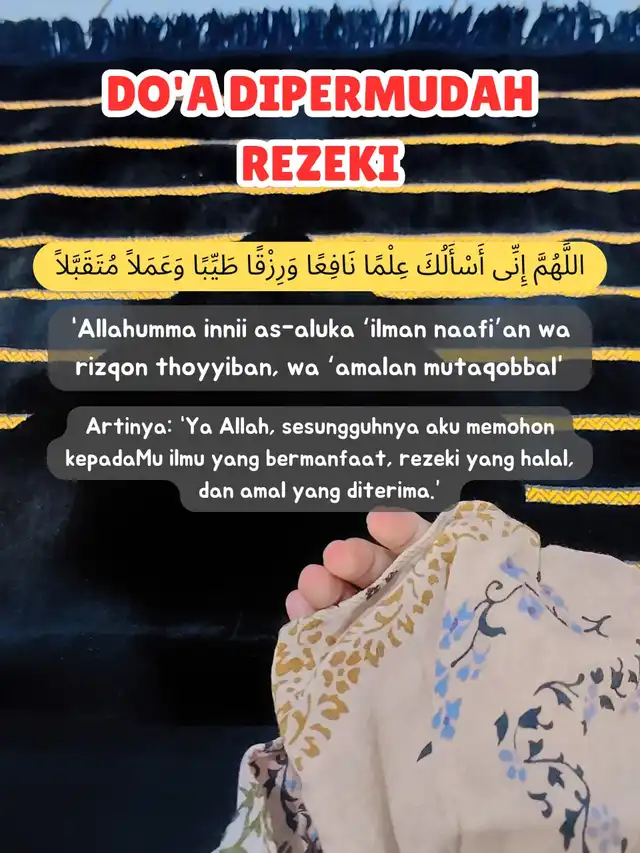 DO'A DIPERMUDAH
REZEKI
اللَّهُمَّ إِنِّى أَسْأَلُكَ عِلْمًا نَافِعًا وَرِزْقًا طَيِّبًا وَعَمَلاً مُتَقَبَّلاً
'Allahumma innii as-aluka ‘ilman naafi’an wa
rizqon thoyyiban, wa ‘amalan mutaqobbal'
Artinya: 'Ya Allah, sesungguhnya aku memohon
kepadaMu ilmu yang bermanfaat, rezeki yang halal,
dan amal yang diterima.'